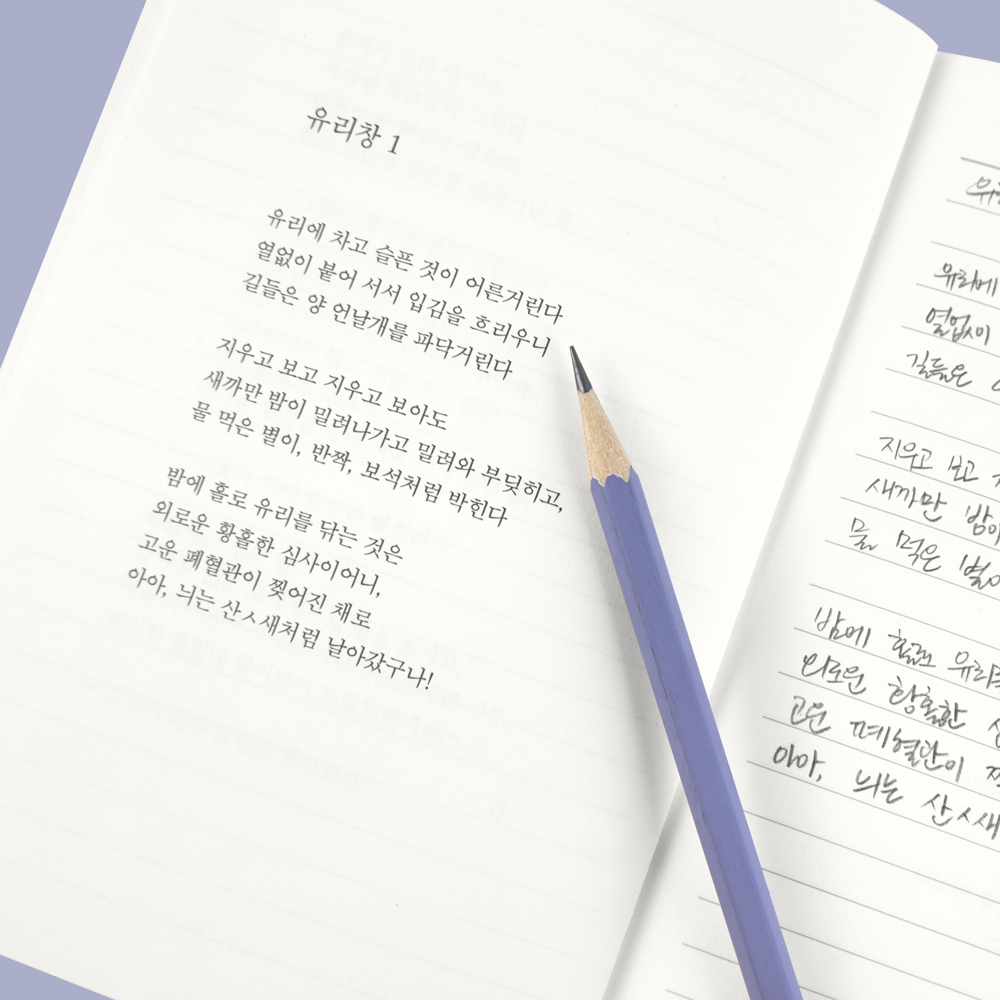 유리창 1
유리에 차고 슬픈 것이 어른거린다
열없이 붙어 서서 입김을 흐리우니
길들은 양 언날개를 파닥거린다
지우고 보고 지우고 보아도
새까만 밤이 밀려나가고 밀려와 부딪히고,
물 먹은 별이, 반짝, 보석처럼 박힌다
밤에 홀로 유리를 닦는 것은
외로운 황홀한 심사이어니,
고운 폐혈관이 찢어진 채로
아아, 늬는 산ㅅ새처럼 날아갔구나!
유리에
열없이
길들은
지우고 보고
새까만 밤이
물 먹은 별이
밤에 홀로 유리를
외로운 황홀한
고운 폐혈관이
아아, 늬는 산ㅅ새